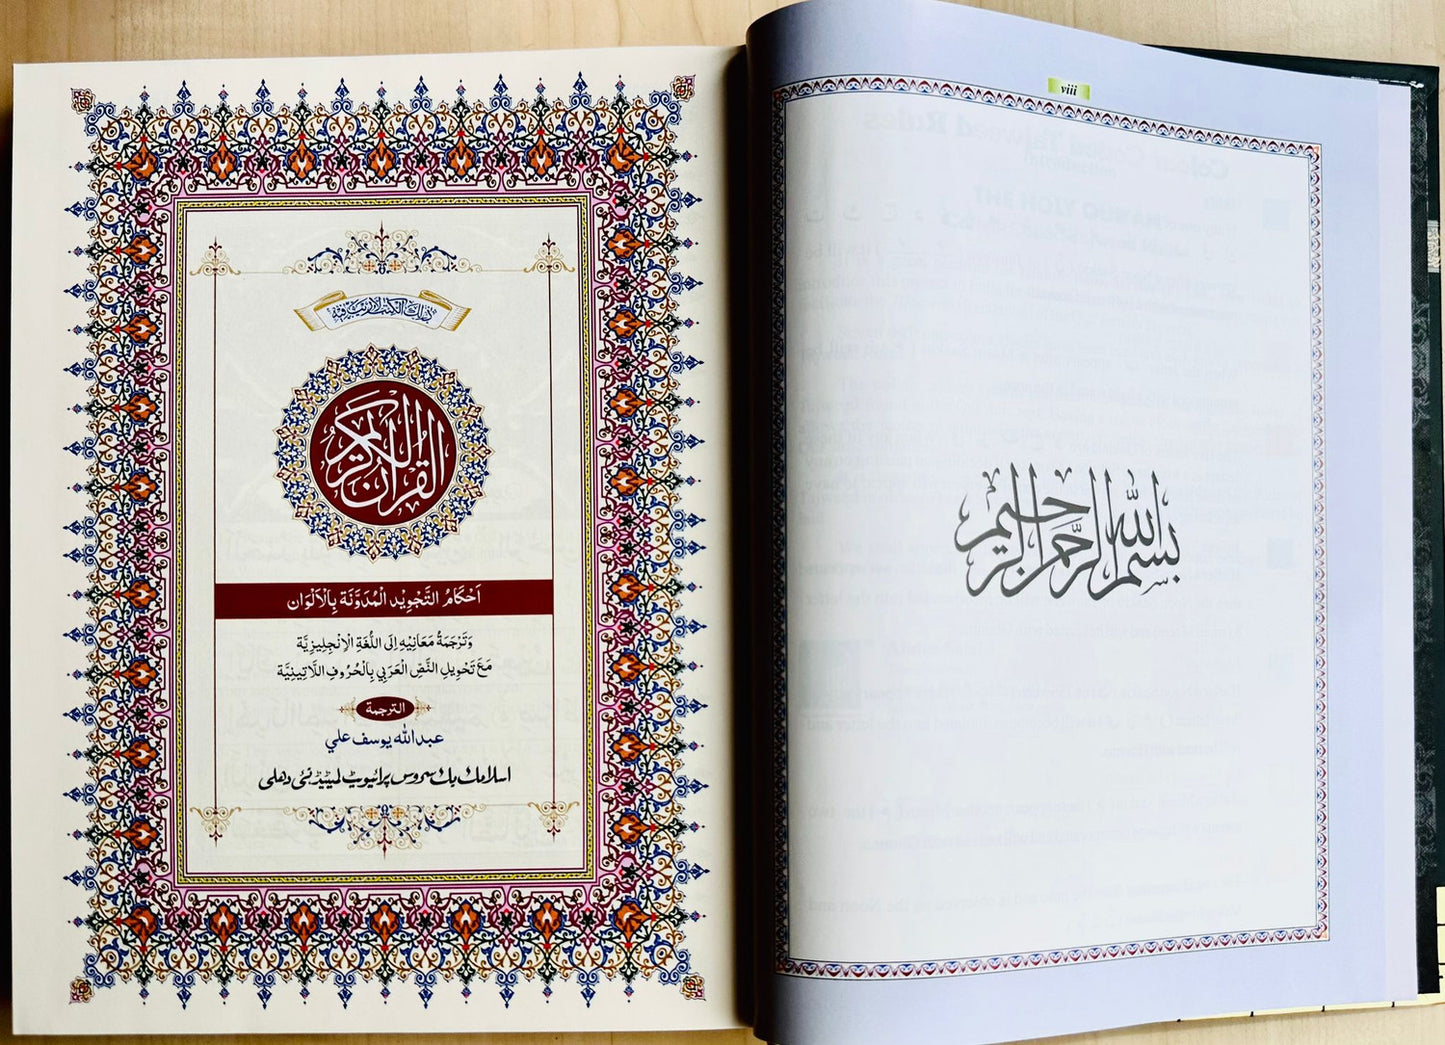 ذلك الكتب لا ريب فيه
القرآن الكريم
اَحْكَامُ التَّجْوِيْد الْمُدَوَّنَة بِالْاَلْوَان
وَتَرْجَمَةُ مَعَانِيْهِ اِلَى اللُّغَةِ الْاِنْجِلِيزِيَّة
مَعَ تَحْوِيلِ النَّصِّ الْعَرَبِي بِالْحُرُوفِ اللَّاتِينِيَّة
الترجمة
عبد الله يوسف علي
اسلامك بك سروس پرائیویٹ لمیٹیڈ نئی دهلی
viii
بسم الله الرحمن الرحيم